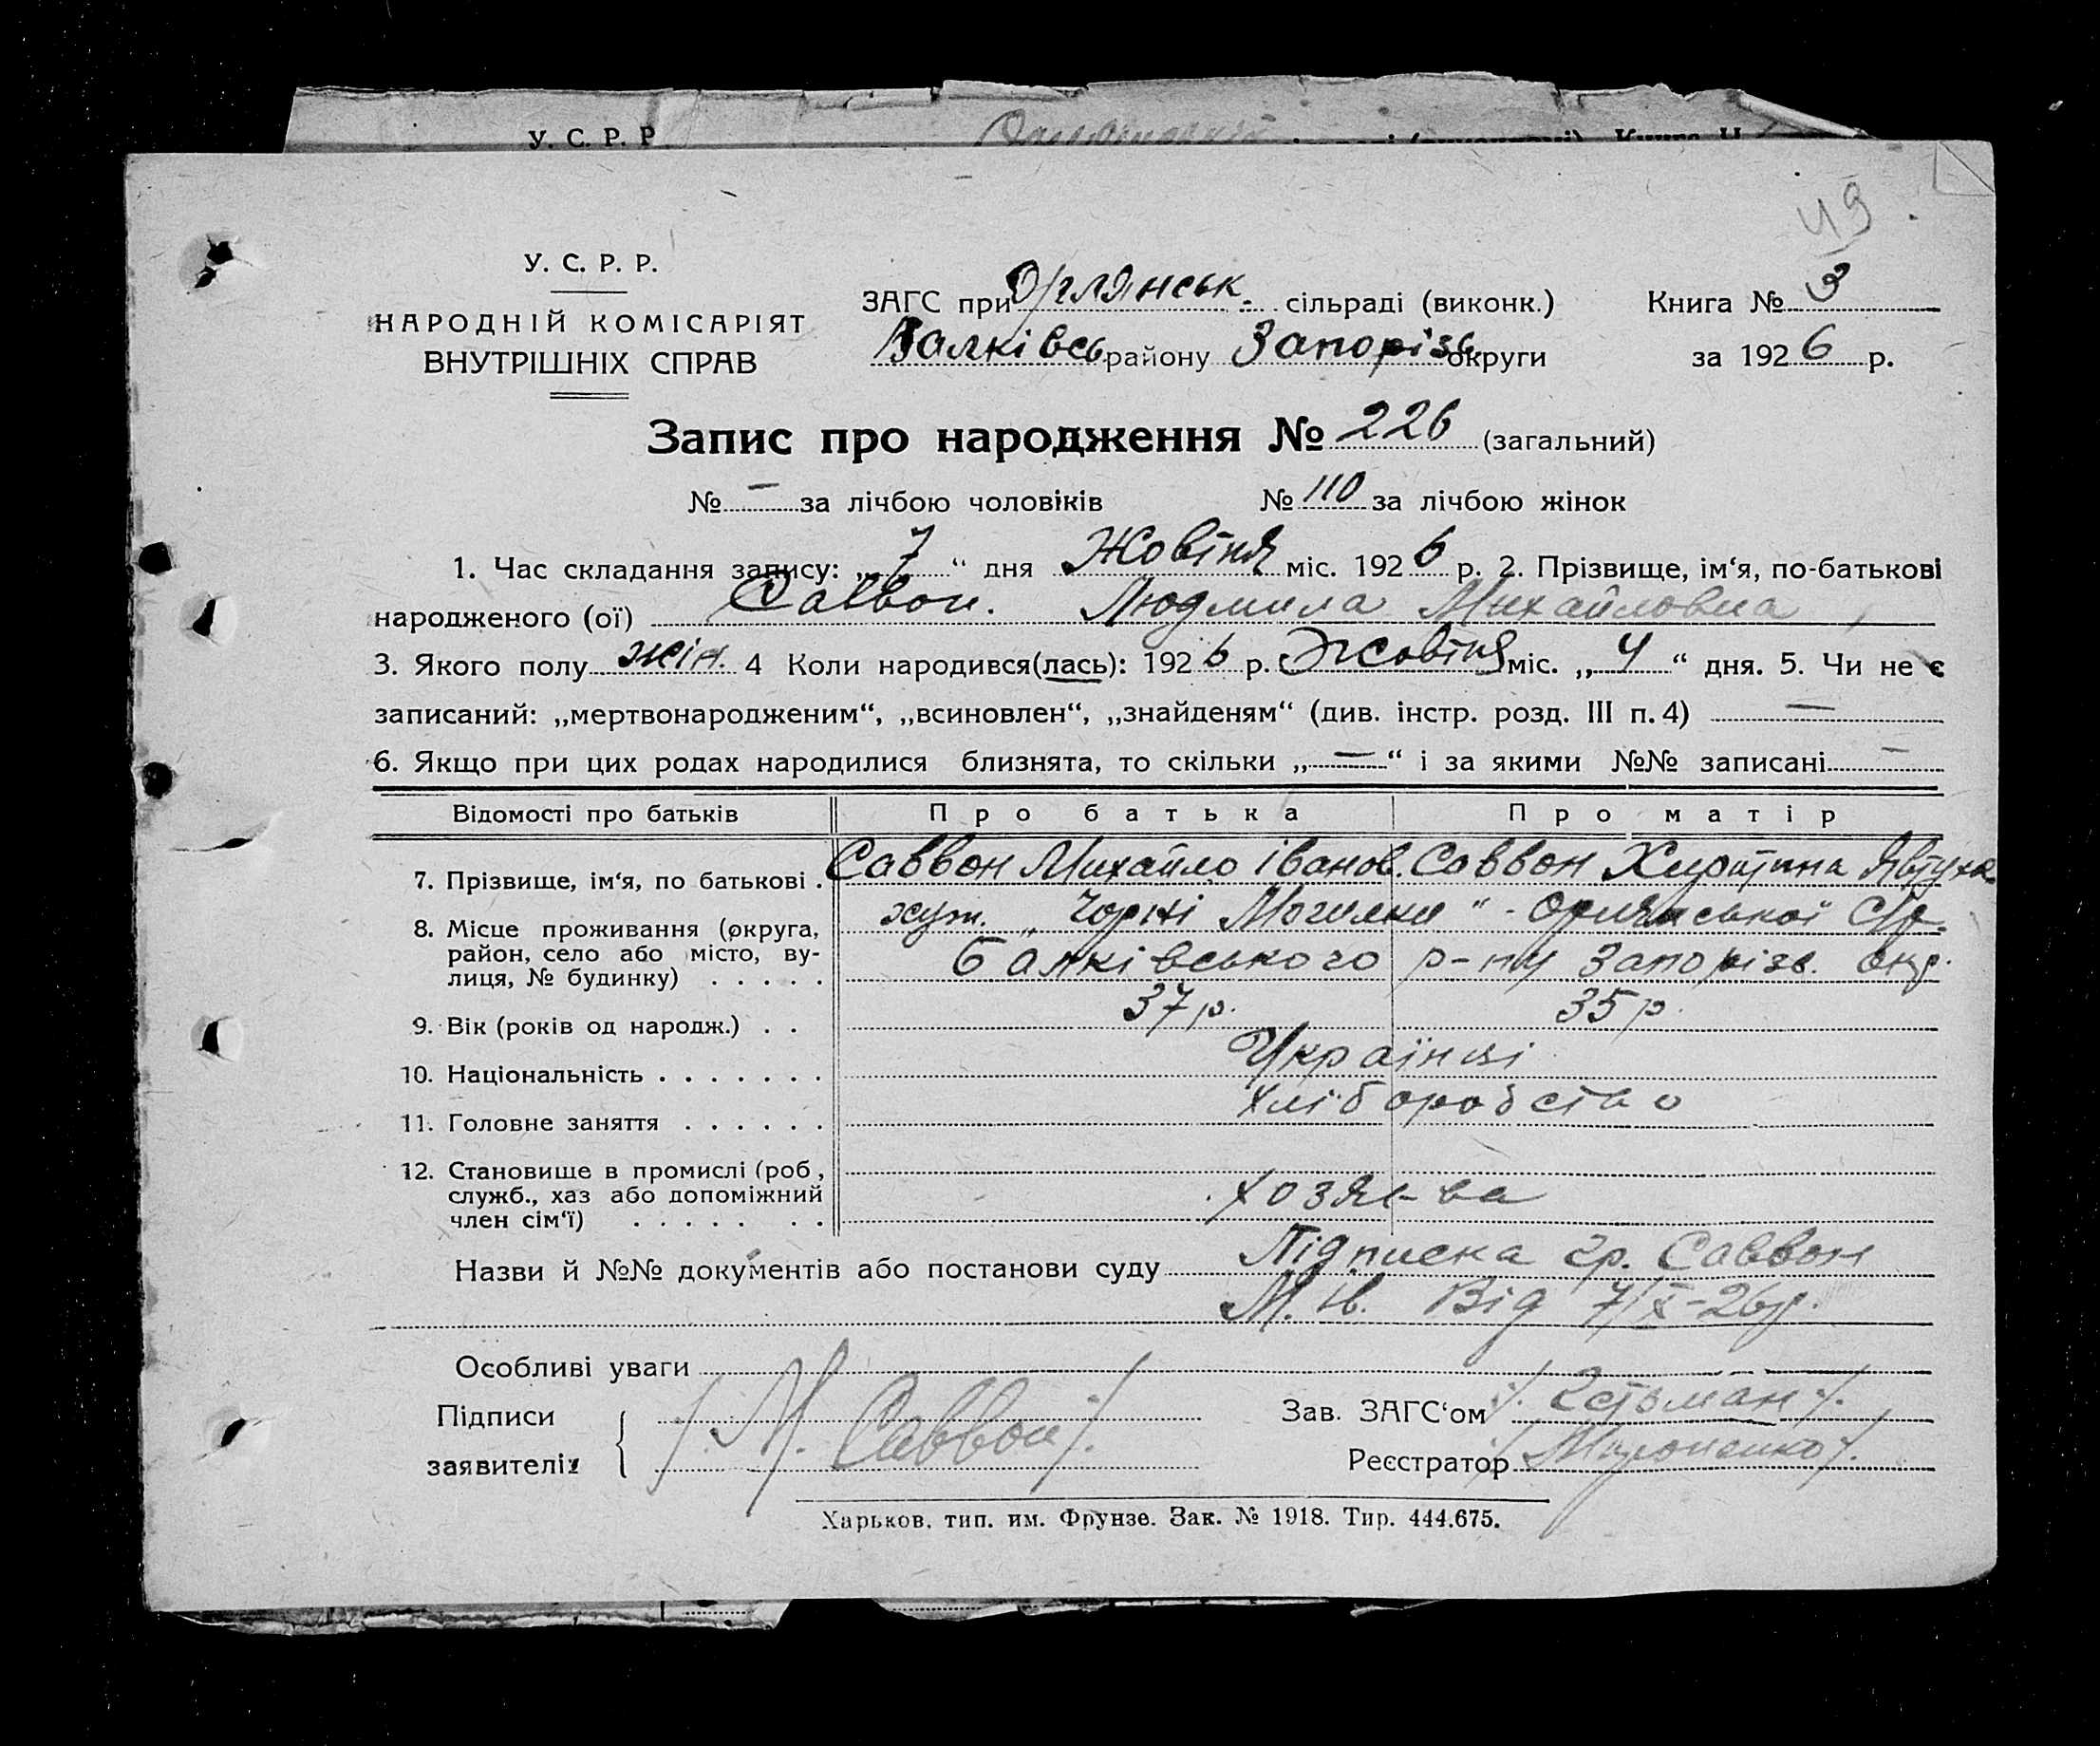 У. С. Р. Р
49
У. С. Р. Р.
НАРОДНІЙ КОМІСАРІЯТ
ВНУТРІШНІХ СПРАВ
ЗАГС при Орлянськ. сільраді (виконк.) Книга № 3
Балківсь району Запорізь округи за 1926 р.
Запис про народження № 226 (загальний)
№ — за лічбою чоловіків № 110 за лічбою жінок
1. Час складання запису: „7“ дня Жовтня міс. 1926 р. 2. Прізвище, ім‘я, по-батькові
народженого (ої) Саввон. Людмила Михайловна
3. Якого полу жін. 4 Коли народився(лась): 1926 р. Жовтня міс. „4“ дня. 5. Чи не є
записаний: „мертвонародженим“, „всиновлен“, „знайденям“ (див. інстр. розд. III п. 4) —
6. Якщо при цих родах народилися близнята, то скільки „—“ і за якими №№ записані —
Відомості про батьків Про батька Про матір
7. Прізвище, ім‘я, по батькові . Саввон Михайло Іванов. Саввон Христина Явтуха.
8. Місце проживання (округа, хут. „Чорні Могилки“ - Орлянської С/р.
район, село або місто, ву- Балківського р-ну Запорізь. окр.
лиця, № будинку) . . . . .
9. Вік (років од народж.) . . 37 р. 35 р.
10. Національність . . . . . . . Українці
11. Головне заняття . . . . . . Хліборобство
12. Становище в промислі (роб,
служб., хаз або допоміжний хозяє-ва
член сім‘ї) . . . . . . .
Назви й №№ документів або постанови суду Підписка гр. Саввон
М. Ів. Від 7/X-26 р.
Особливі уваги
Підписи /М. Саввон/. Зав. ЗАГС‘ом /. Гетьман /.
заявителів Реєстратор / Мироненко /.
Харьков, тип. им. Фрунзе. Зак. № 1918. Тир. 444.675.